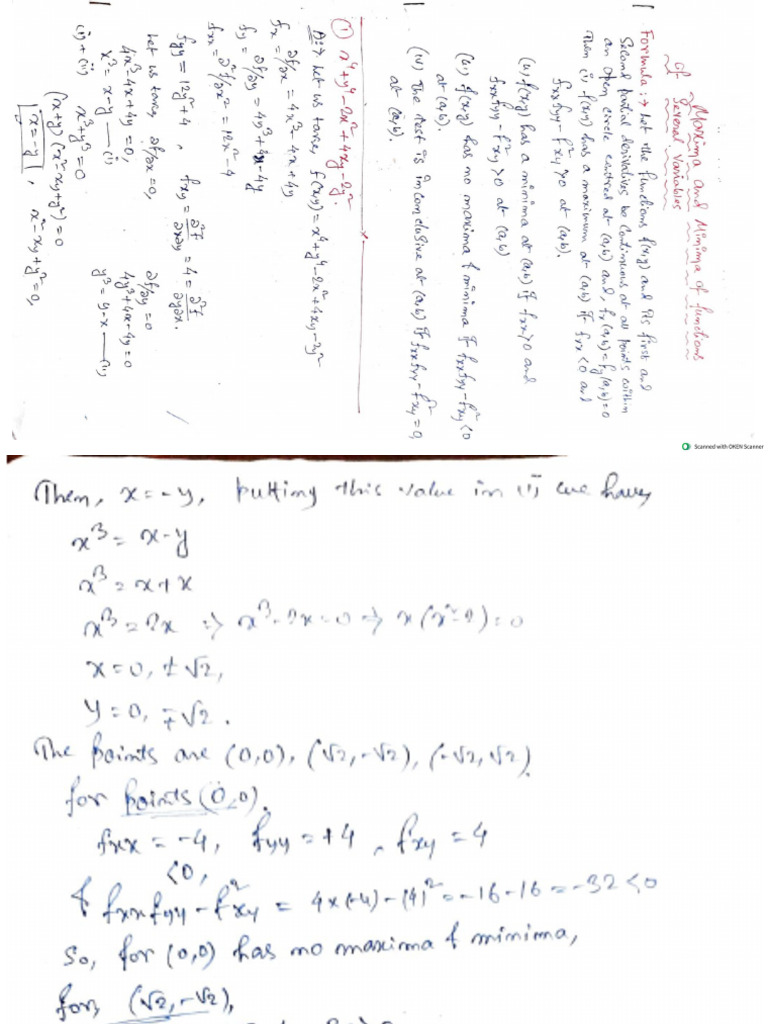 Maxima and Minima of functions
of several variables
Formula :→ Let the functions f(x,y) and its first and
Second partial derivatives be continuous at all points within
an open circle centred at (a,b) and, fx(a,b)=fy(a,b)=0
Then (i) f(x,y) has a maximum at (a,b) if fxx<0 and
fxxfyy-f²xy>0 at (a,b).
(ii) f(x,y) has a minima at (a,b) if fxx>0 and
fxxfyy-f²xy>0 at (a,b)
(iii) f(x,y) has no maxima & minima if fxxfyy-f²xy<0
at (a,b).
(iv) The test is inconclusive at (a,b) if fxxfyy-f²xy=0,
at (a,b).
① x⁴+y⁴-2x²+4xy-2y².
A:→ Let us take, f(x,y)=x⁴+y⁴-2x²+4xy-2y²
fx=∂f/∂x=4x³-4x+4y
fy=∂f/∂y=4y³+4x-4y
fxx=∂²f/∂x²=12x²-4
fyy=12y²+4, fxy=∂²f/∂x∂y=4=∂²f/∂y∂x.
Let us take, ∂f/∂x=0, ∂f/∂y=0
4x³-4x+4y=0, 4y³+4x-4y=0
x³=x-y —(i) y³=y-x —(ii)
(i)+(ii) x³+y³=0
(x+y)(x²-xy+y²)=0
x=-y, x²-xy+y²=0,
Scanned with OKEN Scanner
Then, x=-y, putting this value in (i) we have,
x³=x-y
x³=x+x
x³=2x ⇒ x³-2x=0 ⇒ x(x²-2)=0
x=0, ±√2,
y=0, ∓√2.
The points are (0,0), (√2,-√2), (-√2,√2).
for points (0,0).
fxx=-4, fyy=+4, fxy=4
<0,
& fxxfyy-f²xy=4x(-4)-(4)²=-16-16=-32<0
So, for (0,0) has no maxima & minima,
for, (√2,-√2),